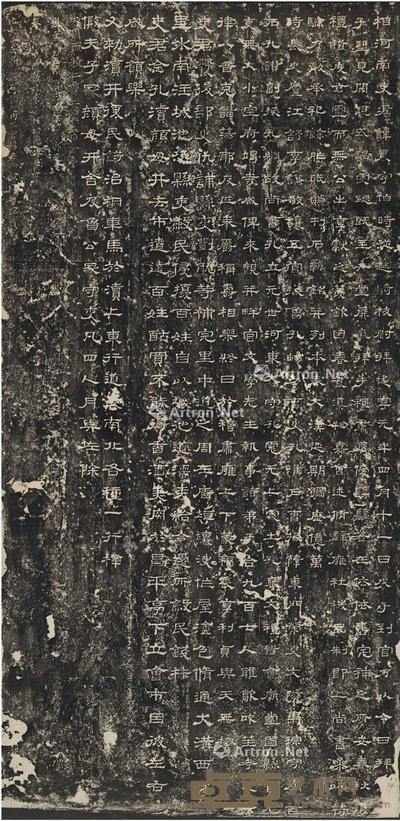 相河南史君諱晨字伯時從越騎校尉拜建寧元年四月十一日戊子到官乃以令日拜
子望見闕觀式路虔跽既至升堂屏氣拜手祗肅屑僾髣髴若在依依舊宅神之所安春秋
禮稽度玄靈而無公出享獻之薦欽因春饗導物嘉會述脩璧雍社稷品制即上尚書參以符
驗乃敢承祀餘胙賦賜刊石勒銘并列本奏大漢延期彌歷億萬
時長史廬江舒李謙敬讓五官掾魯孔暢功曹史孔淮戶曹掾薛東門榮史文陽馬琮守廟百
石孔讃副掾孔綱故尚書孔立元世河東太守孔彪元上處士孔褒文禮皆會廟堂國縣員冗
吏無大小空府竭寺咸俾來觀并畔宮文學先生執事諸弟子合九百七人雅歌吹笙考之六
律八音克諧蕩邪反正奉爵稱壽相樂終日於穆肅雍上下蒙福長享利貞與天無極
史君饗後部史仇誧縣吏劉耽等補完里中道之周左廧垣壞決作屋塗色脩通大溝西流
里外南注城池恐縣吏斂民侵擾百姓自以城池道濡麥給令還所斂民錢材
史君念孔瀆顏母井去市遼遠百姓酤買不能得香酒美肉於昌平亭下立會市因彼左右
咸所願樂
又敕瀆井復民餝治桐車馬於瀆上東行道表南北各種一行梓
假夫子冢顏母井舍及魯公冢守吏凡四人月與佐除